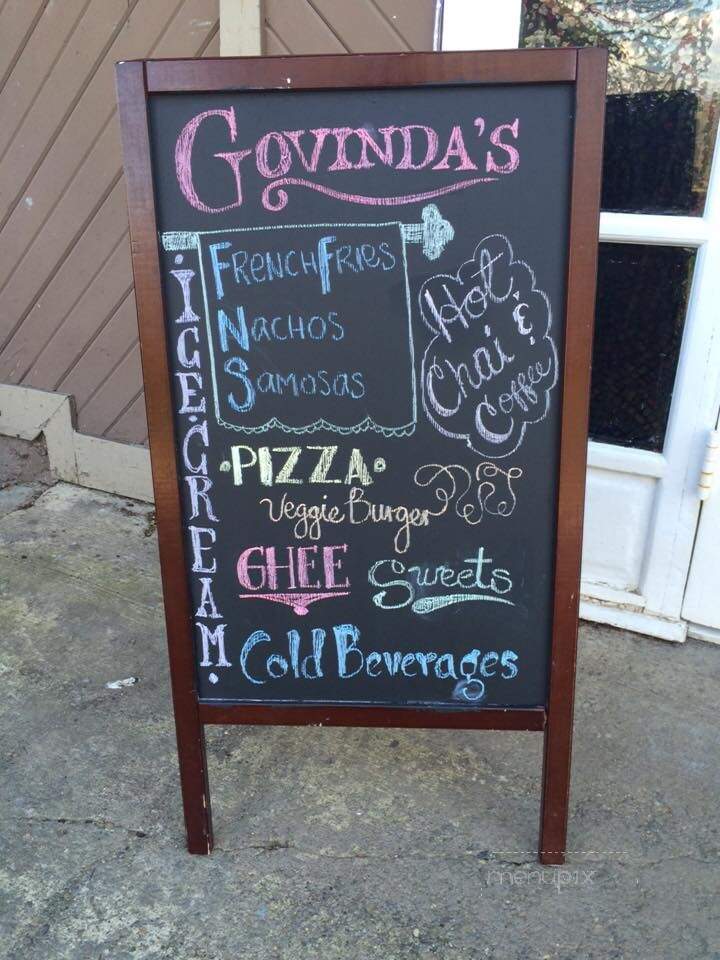 GOVINDA'S
FRENCH FRIES
NACHOS
SAMOSAS
Hot
Chai &
Coffee
·ICE·CREAM·
·PIZZA·
Veggie Burger
GHEE Sweets
Cold Beverages
menupix